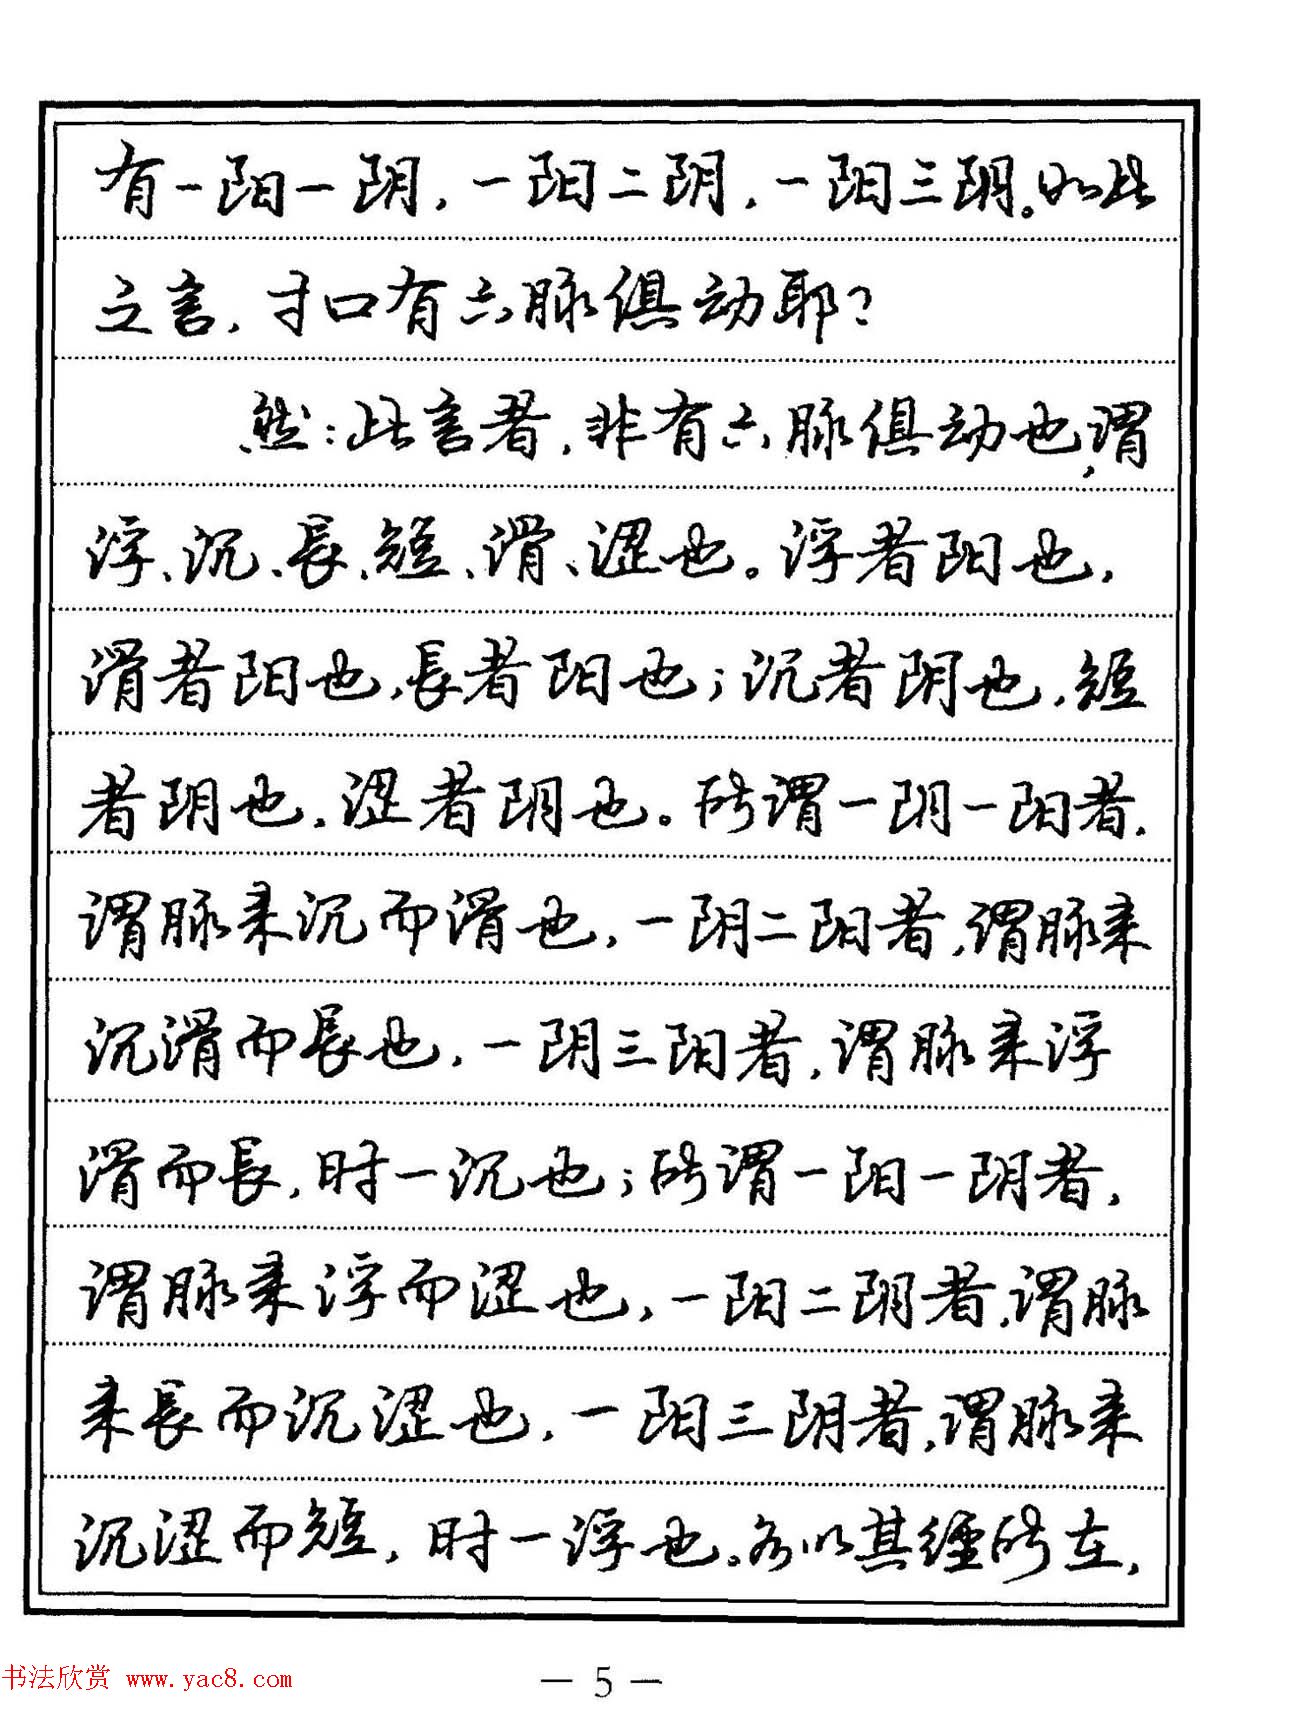 有一阳一阴，一阳二阴，一阳三阴。如此
之言，寸口有六脉俱动耶？
然：此言者，非有六脉俱动也，谓
浮、沉、長、短、滑、涩也。浮者阳也，
滑者阳也，長者阳也；沉者阴也，短
者阴也，涩者阴也。所谓一阴一阳者，
谓脉来沉而滑也，一阴二阳者，谓脉来
沉滑而長也，一阴三阳者，谓脉来浮
滑而長，时一沉也；所谓一阳一阴者，
谓脉来浮而涩也，一阳二阴者，谓脉
来長而沉涩也，一阳三阴者，谓脉来
沉涩而短，时一浮也。各以其經所在，
书法欣赏 www.yac8.com
— 5 —